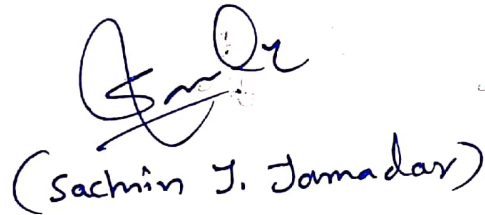 (Sachin J. Jamadar)